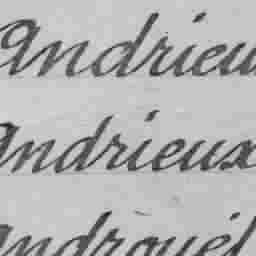 Andrieu
Andrieux
Androuël